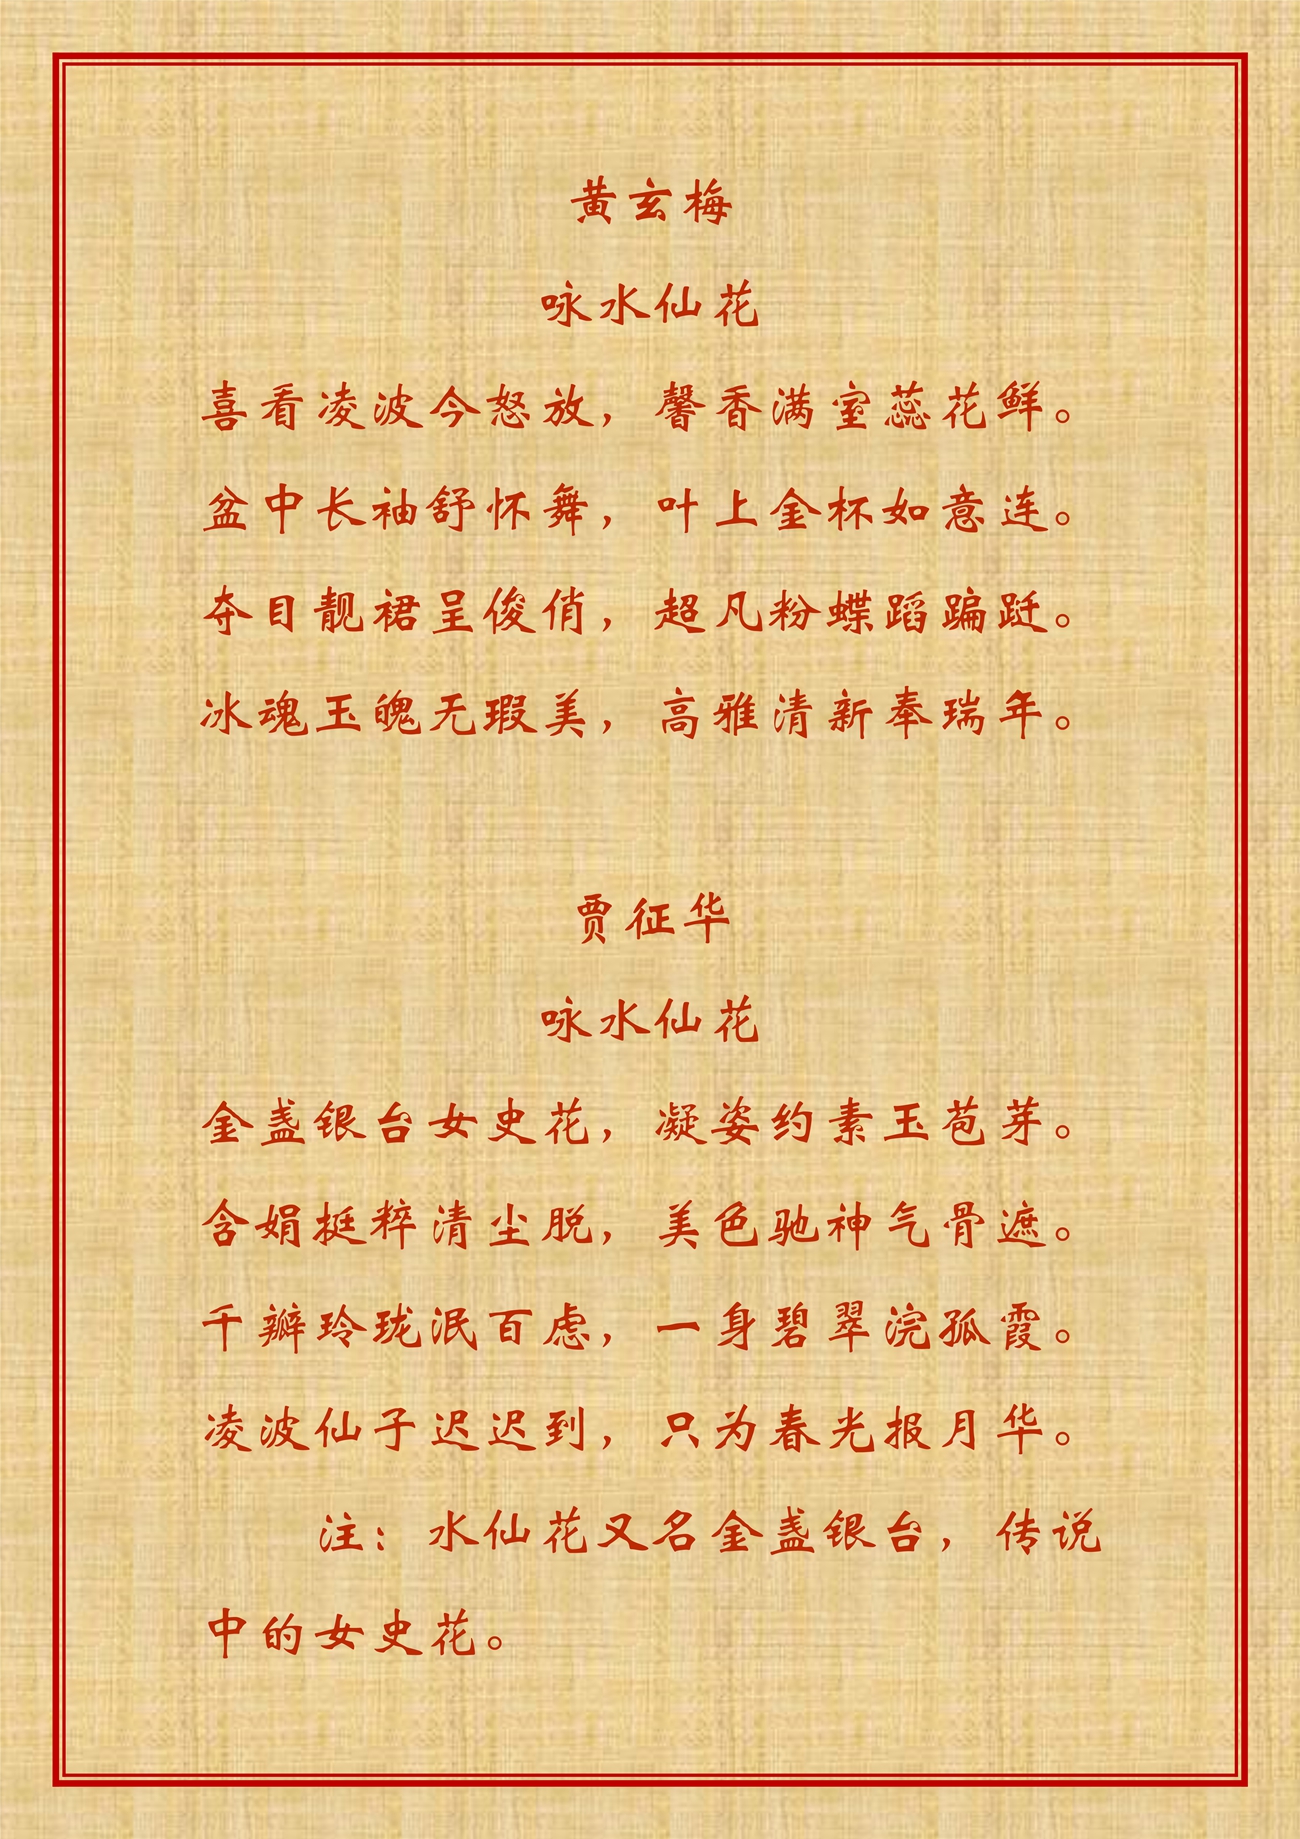 黄玄梅
咏水仙花
喜看凌波今怒放，馨香满室蕊花鲜。
盆中长袖舒怀舞，叶上金杯如意连。
夺目靓裙呈俊俏，超凡粉蝶蹈蹁跹。
冰魂玉魄无瑕美，高雅清新奉瑞年。
贾征华
咏水仙花
金盏银台女史花，凝姿约素玉苞芽。
含娟挺粹清尘脱，美色驰神气骨遮。
千瓣玲珑泯百虑，一身碧翠浣孤霞。
凌波仙子迟迟到，只为春光报月华。
注：水仙花又名金盏银台，传说
中的女史花。